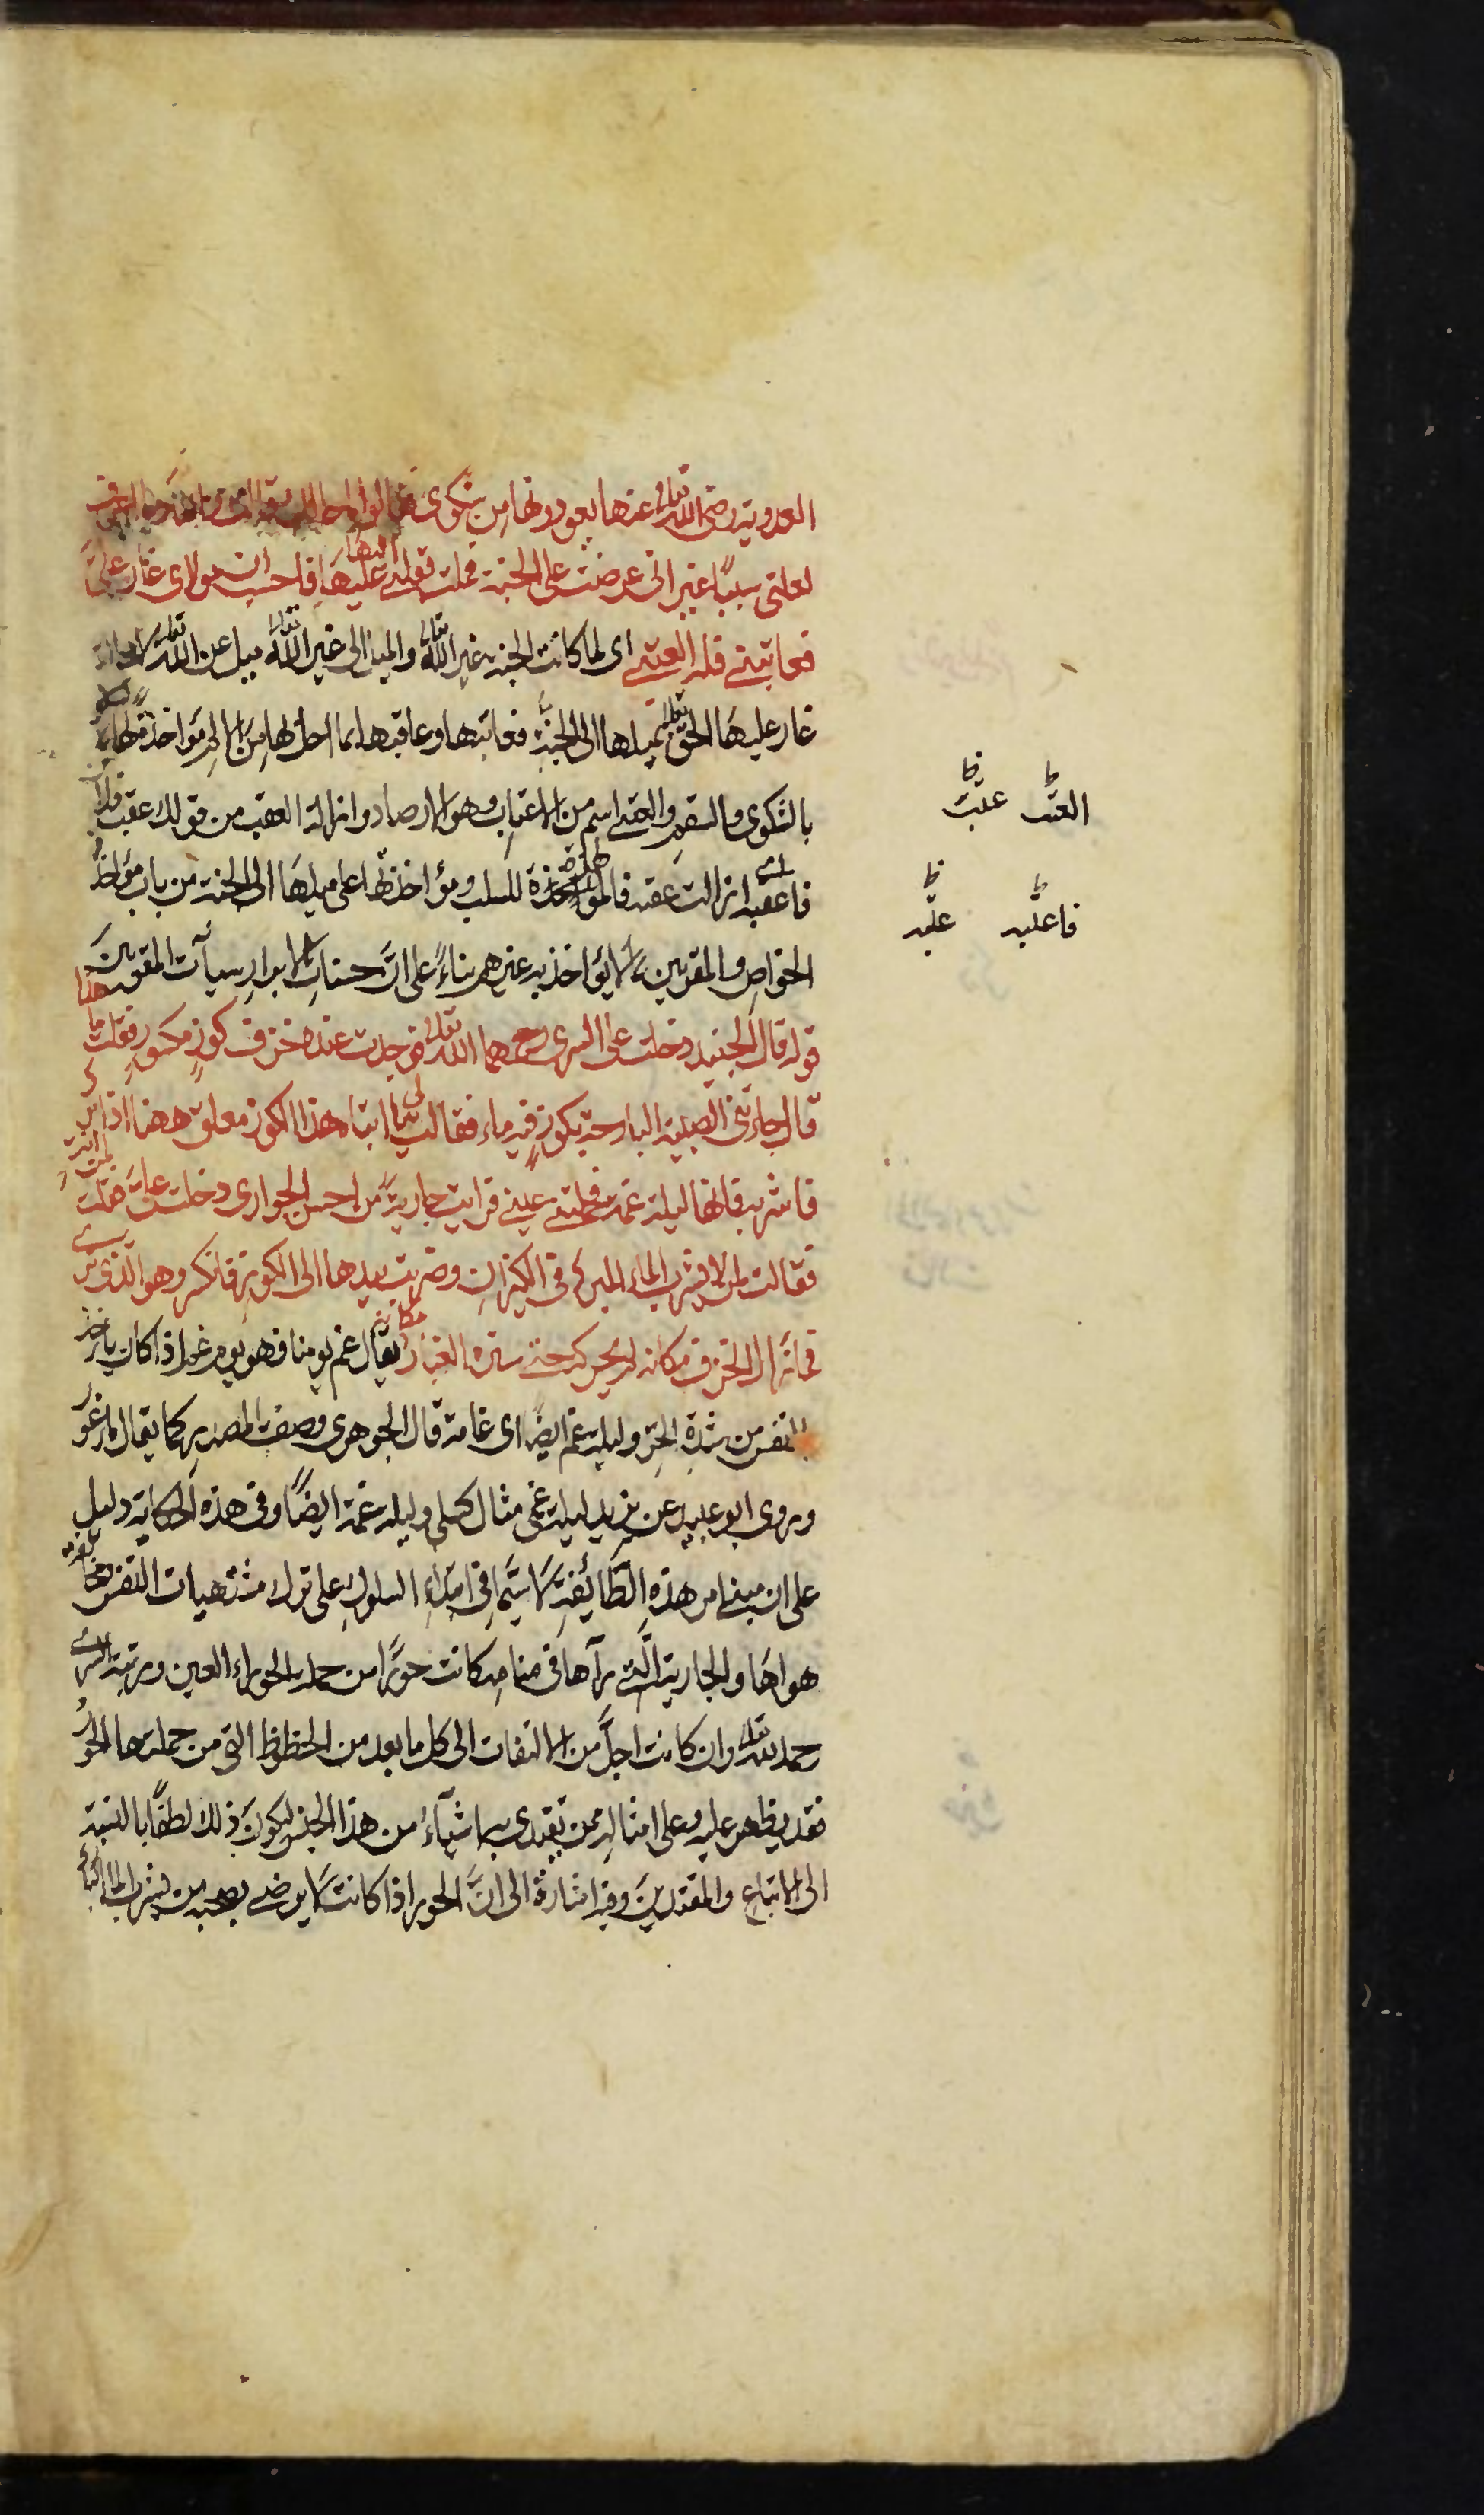 العدوية رضى الله تعالى عنها يعودونها من شكوى فقالوا ما حالك فقالت والله ما اعرف
لعلتى سببا غير انى عرضت على الجنة فملت بقلبى اليها فاحسب ان مولاى غار على
فعاتبنى فله العتبى اى لما كانت الجنة غير الله تعالى والميل الى غير الله تعالى ميل عن الله تعالى
غار عليها الحق تعالى بميلها الى الجنة فعاتبها وعاقبها بما احل بها من الالم مؤاخذة لها
بالشكوى والسقم والعتبى اسم من الاعتاب وهو الارصاد وازالة العقب من قولك عقب فلان
فاعقبه اى ازالت عقبه فالمؤاخذة للسلب ومؤاخذتها على ميلها الى الجنة من باب مؤاخذة
الخواص والمقربين بما لا يؤاخذ به غيرهم بناء على ان حسنات الابرار سيآت المقربين
قوله قال الجنيد دخلت على السرى رحمهما الله تعالى فوجدت عنده خزف كوز مكسور فقلت ما هذا
قال جاءتنى الصبية البارحة بكوز فيه ماء فقالت لى يا ابتاه هذا الكوز معلق ههنا اذا برد
فاشربه فانها ليلة غمة فحملتنى عينى فرايت جارية من احسن الجوارى دخلت على فقلت لمن انت
فقالت لمن لا يشرب الماء المبرد فى الكيزان وضربت بيدها الى الكوز فانكسر وهو الذى ترى
فما زال الخزف مكانه لم يحركه حتى ستره الغبار يقال غم يومنا فهو يوم غم اذا كان ياخذ
بالنفس من شدة الحر وليلة غم ايضا اى غامة قال الجوهرى وصف بالمصدر كما يقال ماء غور
وروى ابو عبيد عن ابى زيد ليلة غمى مثال كسلى وليلة غمة ايضا وفى هذه الحكاية دليل
على ان مبنى امر هذه الطائفة لا سيما فى ابتداء السلوك على ترك مشتهيات النفس ومخالفة
هواها والجارية التى رآها فى منامه كانت حورا من جملة الحوراء العين ومرتبة السرى
رحمه الله تعالى وان كانت اجل من الالتفات الى كل ما يعد من الحظوظ التى من جملتها الحور
فقد يظهر عليه وعلى امثاله ممن يقتدى به اشياء من هذا الجنس ليكون ذلك لطفا بالنسبة
الى الاتباع والمقتدين وفيه اشارة الى ان الحور اذا كانت لا يرضى بصحبه من يشرب الماء البارد
العتب عتب
فاعتبه عتبه